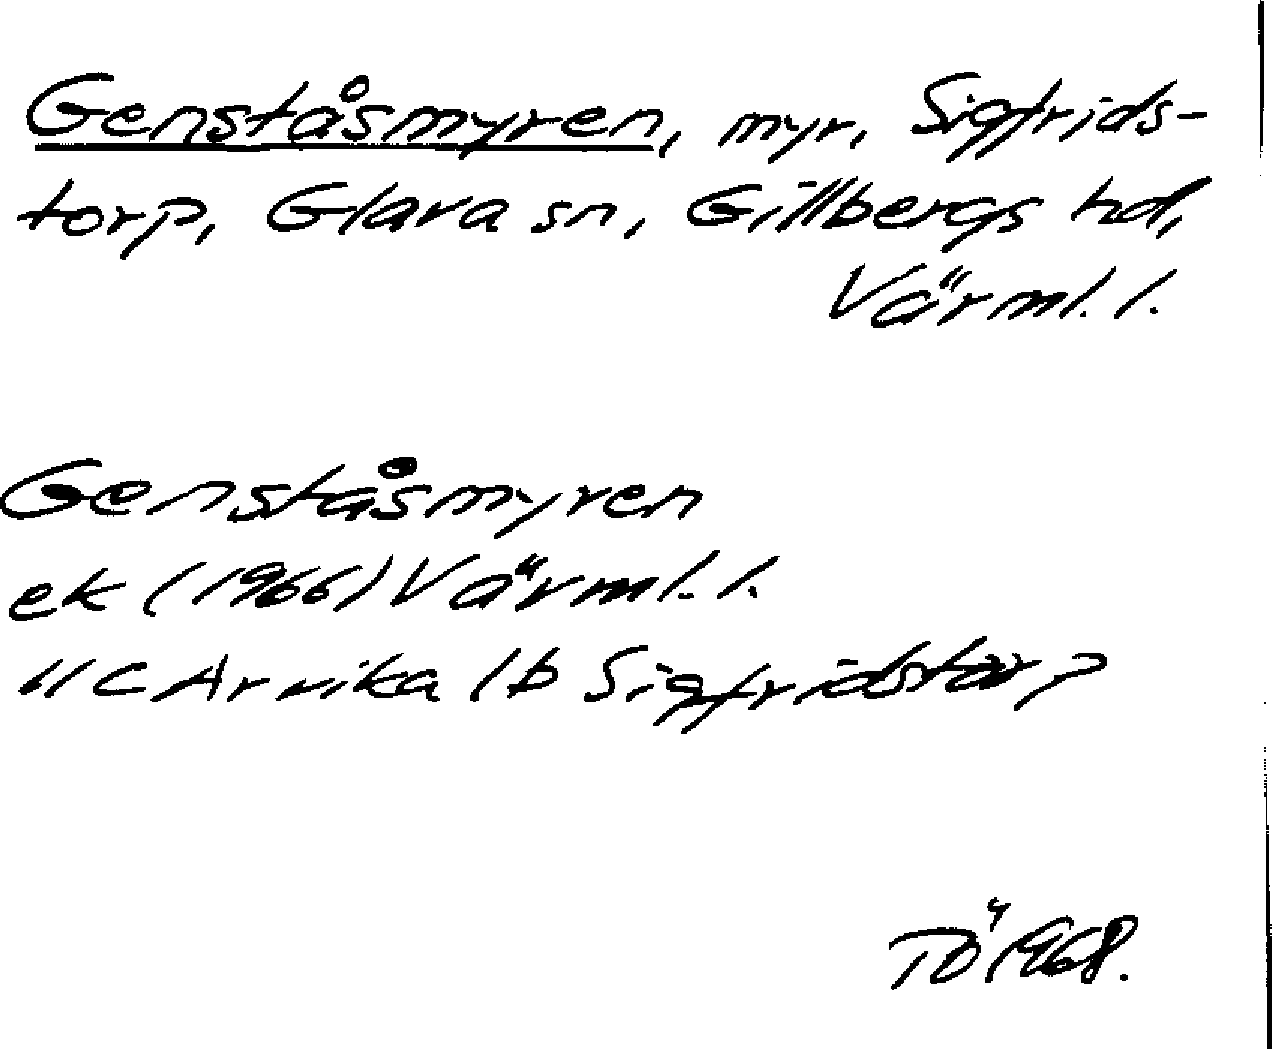 Genståsmyren, myr, Sigfrids-
torp, Glava sn, Gillbergs hd,
Värml. l.
Genståsmyren
ek (1966) Värml. l.
11 C Arvika 1 b Sigfridstorp
TÖ 1968.